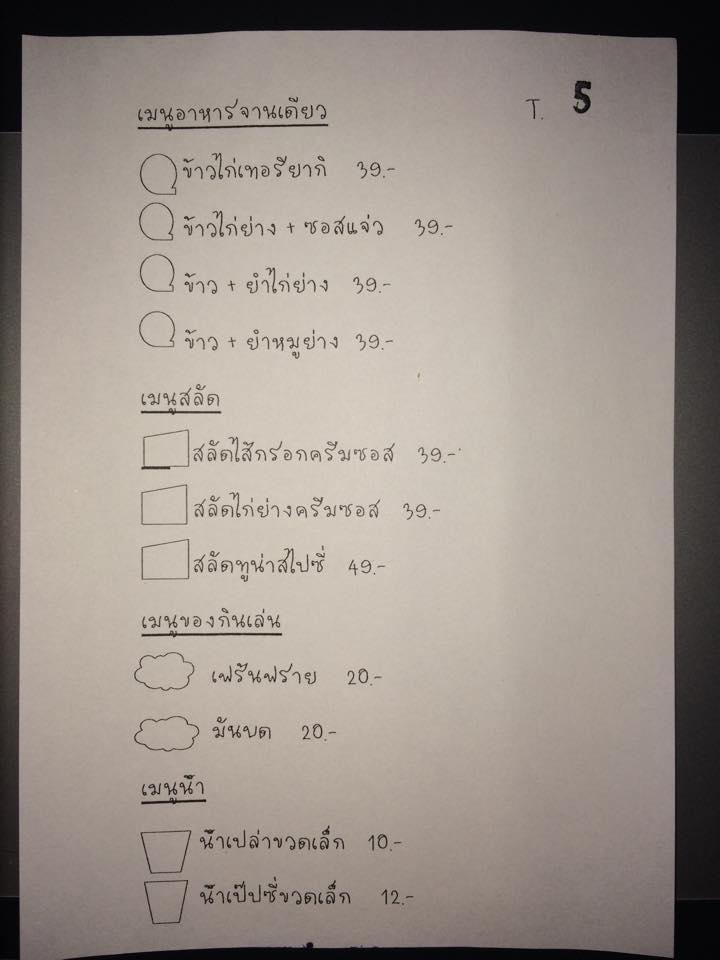 เมนูอาหารจานเดียว T. 5
ข้าวไก่เทอรียากิ 39.-
ข้าวไก่ย่าง + ซอสแจ่ว 39.-
ข้าว + ยำไก่ย่าง 39.-
ข้าว + ยำหมูย่าง 39.-
เมนูสลัด
สลัดไส้กรอกครีมซอส 39.-
สลัดไก่ย่างครีมซอส 39.-
สลัดทูน่าสไปซี่ 49.-
เมนูของกินเล่น
เฟร้นฟราย 20.-
มันบด 20.-
เมนูน้ำ
น้ำเปล่าขวดเล็ก 10.-
น้ำเป๊ปซี่ขวดเล็ก 12.-